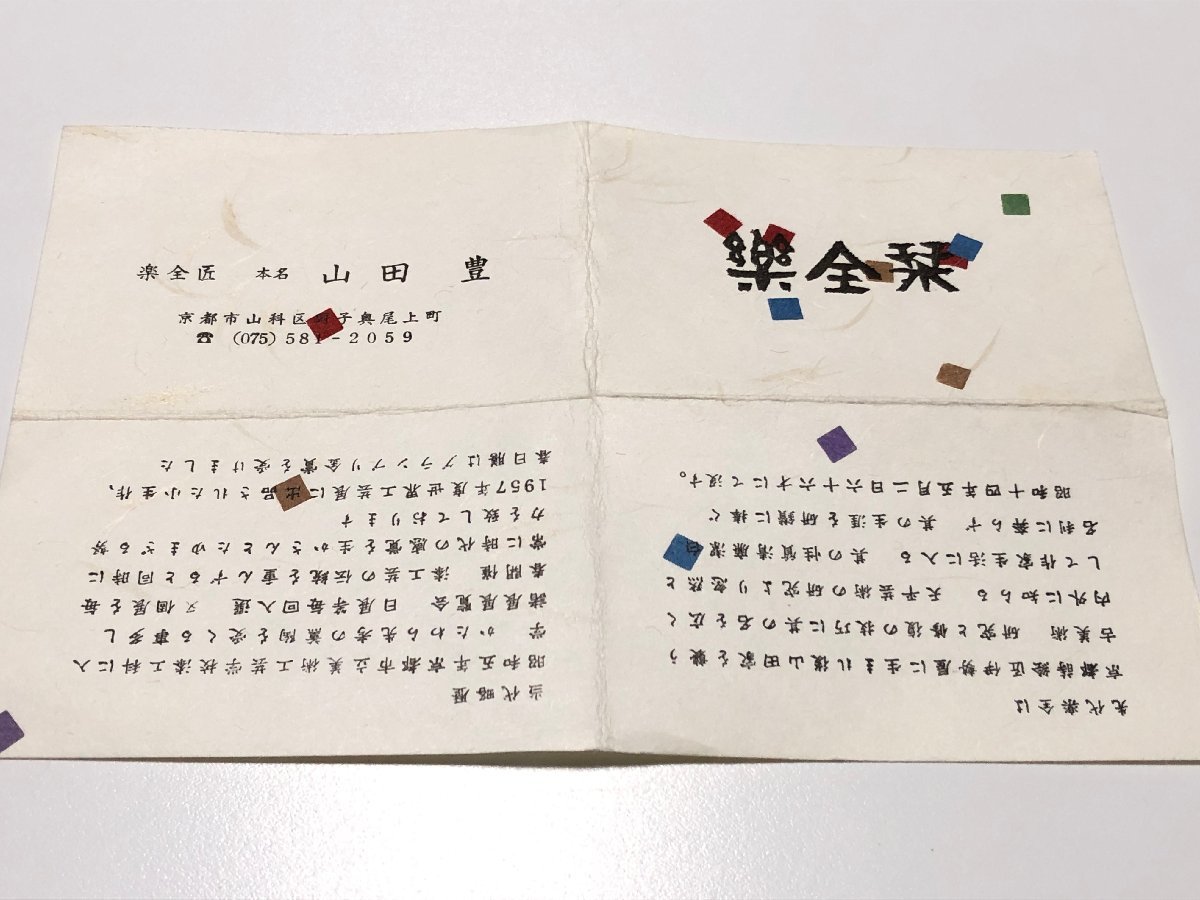 樂全栞
楽全匠 本名 山田 豊
京都市山科区 子奥尾上町
☎ (075)581-2059
先代楽全は
京都蒔絵匠伊勢屋に生まれ後山田家を襲う
古美術 研究と修復の技巧に其の名を広く
内外に知らる 天平芸術の研究より忽然と
して作家生活に入る 其の性質清廉潔白
名利に奔らず 其の生涯を研鑽に捧ぐ
昭和十四年五月二日六十六才にて没す。
当代略歴
昭和五年京都市立美術工芸学校漆工科に入
学 かたわら先考の薫陶を受くる事多し
諸展覧会 日展等毎回入選 又個展を毎
春開催 漆工芸の伝統を重んずると同時に
常に時代の感覚を生かさんとたゆまざる努
力を致しております
1957年度世界工芸展に出品された小生作、
春日膳はグランプリ金賞を受けました